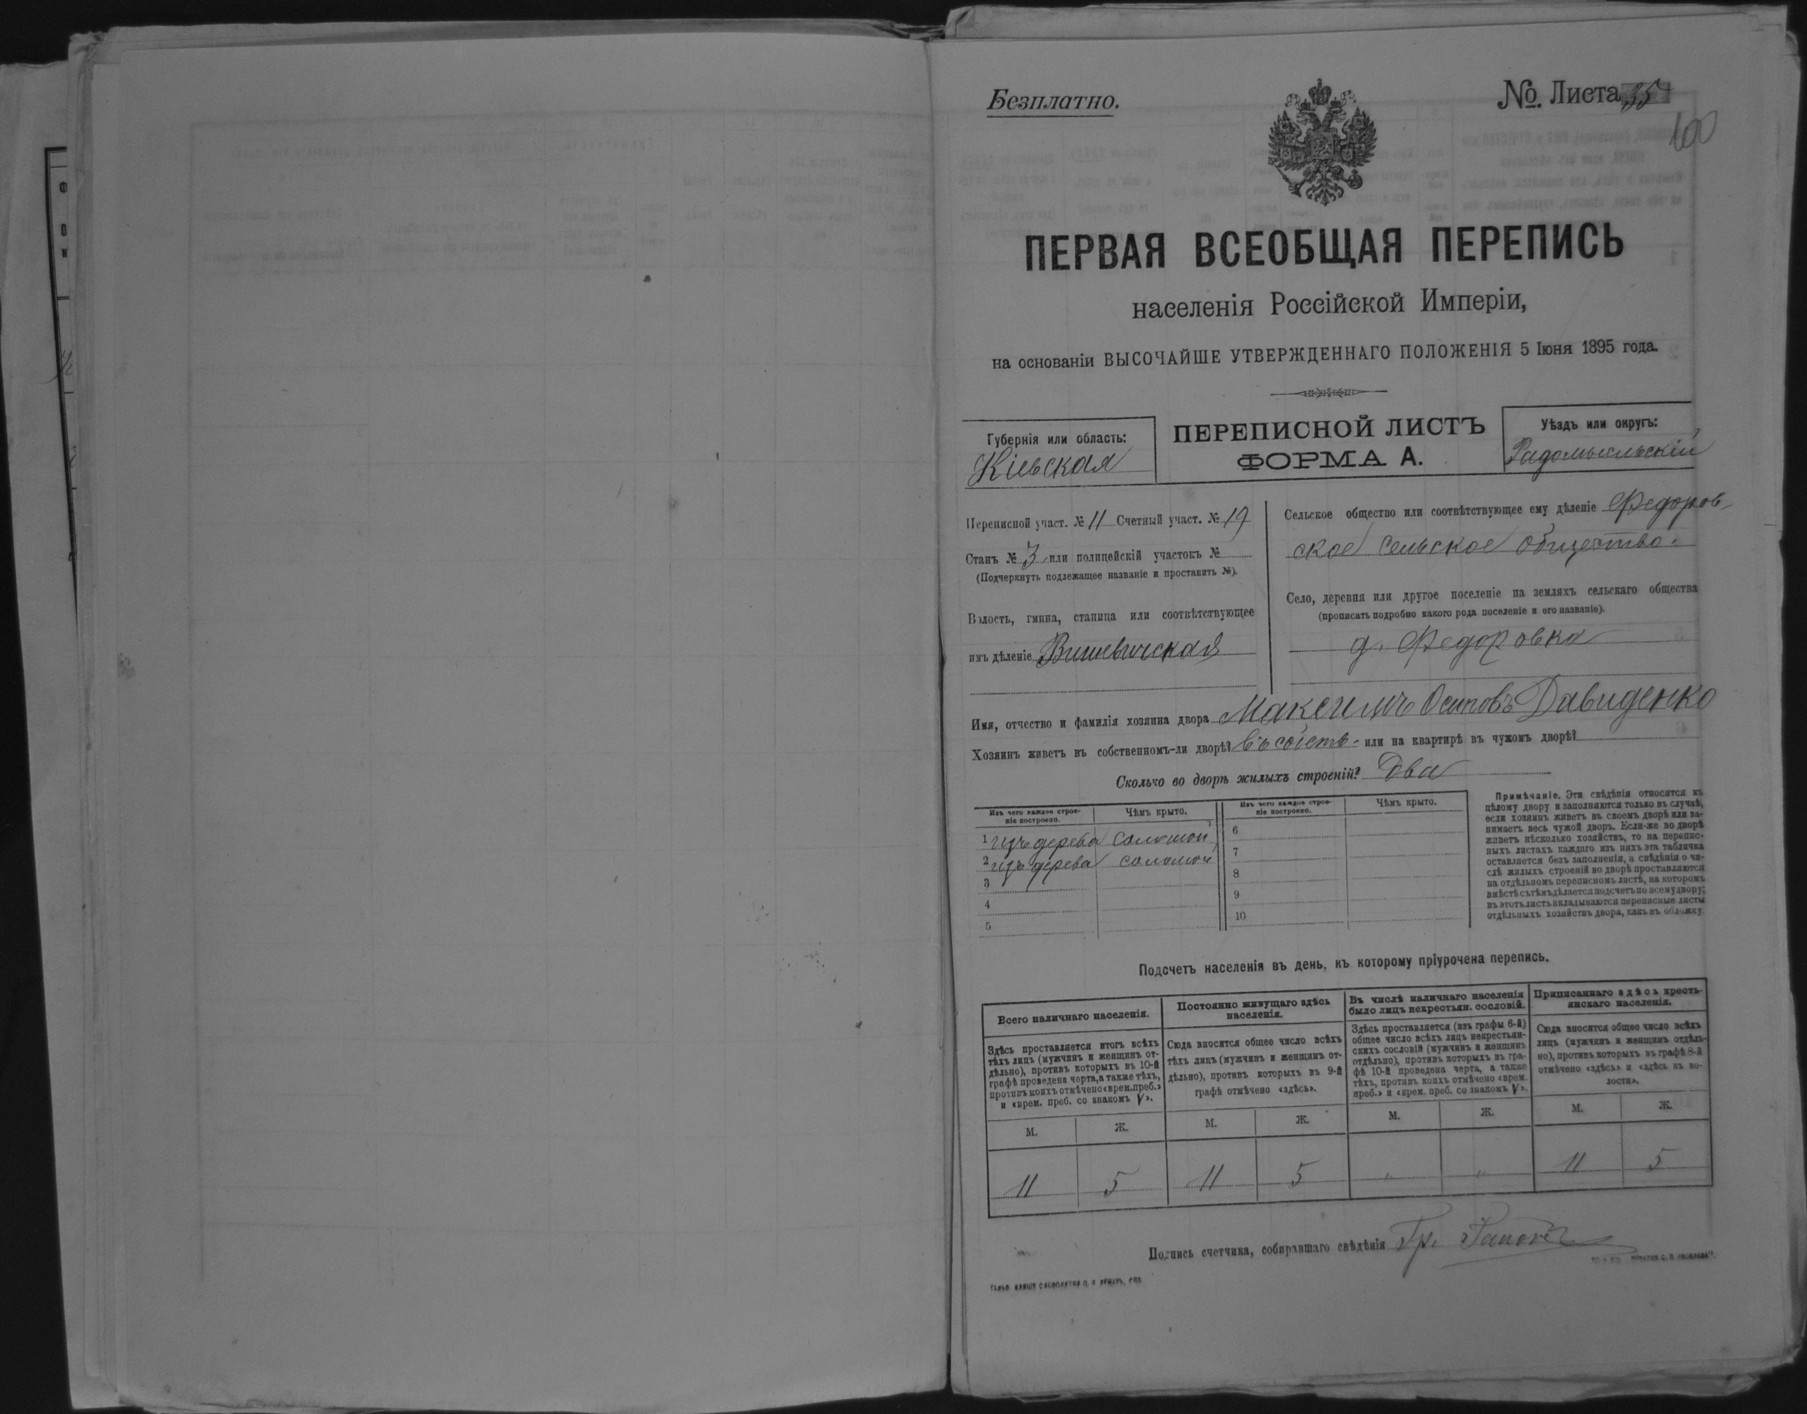 Безплатно.
№ Листа 35
100
ПЕРВАЯ ВСЕОБЩАЯ ПЕРЕПИСЬ
населенія Россійской Имперіи,
на основаніи ВЫСОЧАЙШЕ УТВЕРЖДЕННАГО ПОЛОЖЕНІЯ 5 Іюня 1895 года.
Губернія или область:
Кіевская
ПЕРЕПИСНОЙ ЛИСТЪ
ФОРМА А.
Уѣздъ или округъ:
Радомысльскій
Переписной участ. № 11 Счетный участ. № 19
Станъ № 3 или полицейскій участокъ №
(Подчеркнуть подлежащее названіе и проставить №).
Волость, гмина, станица или соотвѣтствующее
имъ дѣленіе Вишевичская
Сельское общество или соотвѣтствующее ему дѣленіе Федоров-
ское сельское общество.
Село, деревня или другое поселеніе на земляхъ сельскаго общества
(прописать подробно какого рода поселеніе и его названіе).
д. Федоровка
Имя, отчество и фамилія хозяина двора Максимъ Осиповъ Давиденко
Хозяинъ живетъ въ собственномъ-ли дворѣ? въ собств. или на квартирѣ въ чужомъ дворѣ?
Сколько во дворѣ жилыхъ строеній? Два
Изъ чего каждое строе-
ніе построено.
Чѣмъ крыто.
1 изъ дерева соломой
2 изъ дерева соломой
3
4
5
Изъ чего каждое строе-
ніе построено.
Чѣмъ крыто.
6
7
8
9
10
Примѣчаніе. Эти свѣдѣнія относятся къ
цѣлому двору и заполняются только въ случаѣ,
если хозяинъ живетъ въ своемъ дворѣ или за-
нимаетъ весь чужой дворъ. Если-же во дворѣ
живетъ нѣсколько хозяйствъ, то на перепис-
ныхъ листахъ каждаго изъ нихъ эта табличка
оставляется безъ заполненія, а свѣдѣнія о чи-
слѣ жилыхъ строеній во дворѣ проставляются
на отдѣльномъ переписномъ листѣ, на которомъ
вмѣстѣ съ тѣмъ дѣлается подсчетъ по всему двору;
въ этотъ листъ вкладываются переписные листы
отдѣльныхъ хозяйствъ двора, какъ въ обложку.
Подсчетъ населенія въ день, къ которому пріурочена перепись.
Всего наличнаго населенія.
Здѣсь проставляется итогъ всѣхъ
тѣхъ лицъ (мужчинъ и женщинъ от-
дѣльно), противъ которыхъ въ 10-й
графѣ проведена черта, а также тѣхъ,
противъ коихъ отмѣчено «врем. преб.»
и «врем. преб. со знакомъ V».
М. Ж.
11 5
Постоянно живущаго здѣсь
населенія.
Сюда вносится общее число всѣхъ
тѣхъ лицъ (мужчинъ и женщинъ от-
дѣльно), противъ которыхъ въ 9-й
графѣ отмѣчено «здѣсь».
М. Ж.
11 5
Въ числѣ наличнаго населенія
было лицъ некрестьян. сословій.
Здѣсь проставляется (изъ графы 6-й)
общее число всѣхъ лицъ некрестьян-
скихъ сословій (мужчинъ и женщинъ
отдѣльно), противъ которыхъ въ гра-
фѣ 10-й проведена черта, а также
тѣхъ, противъ коихъ отмѣчено «врем.
преб.» и «врем. преб. со знакомъ V».
М. Ж.
" "
Приписаннаго здѣсь кресть-
янскаго населенія.
Сюда вносится общее число всѣхъ
лицъ (мужчинъ и женщинъ отдѣль-
но), противъ которыхъ въ графѣ 8-й
отмѣчено «здѣсь» и «здѣсь къ во-
лости».
М. Ж.
11 5
Подпись счетчика, собиравшаго свѣдѣнія Гр.